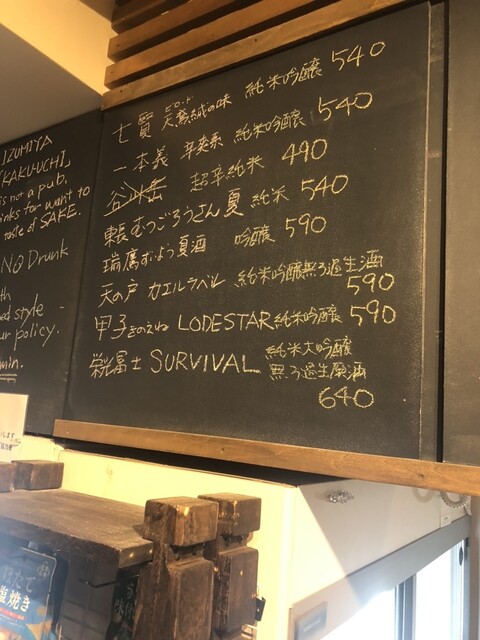 七賢 ビロード 天鵞絨の味 純米吟醸 540
一本義 辛爽系 純米吟醸 540
谷川岳 超辛純米 490
東長 むつごろうさん夏 純米 540
瑞鷹 ずいよう 夏酒 吟醸 590
天の戸 カエルラベル 純米吟醸無ろ過生酒
590
甲子 きのえね LODESTAR 純米吟醸 590
栄冨士 SURVIVAL 純米大吟醸
無ろ過生原酒
640
IZUMIYA
KAKU-UCHI
is not a pub,
want to
taste of SAKE.
NO Drunk
style
policy.
min.
塩焼き